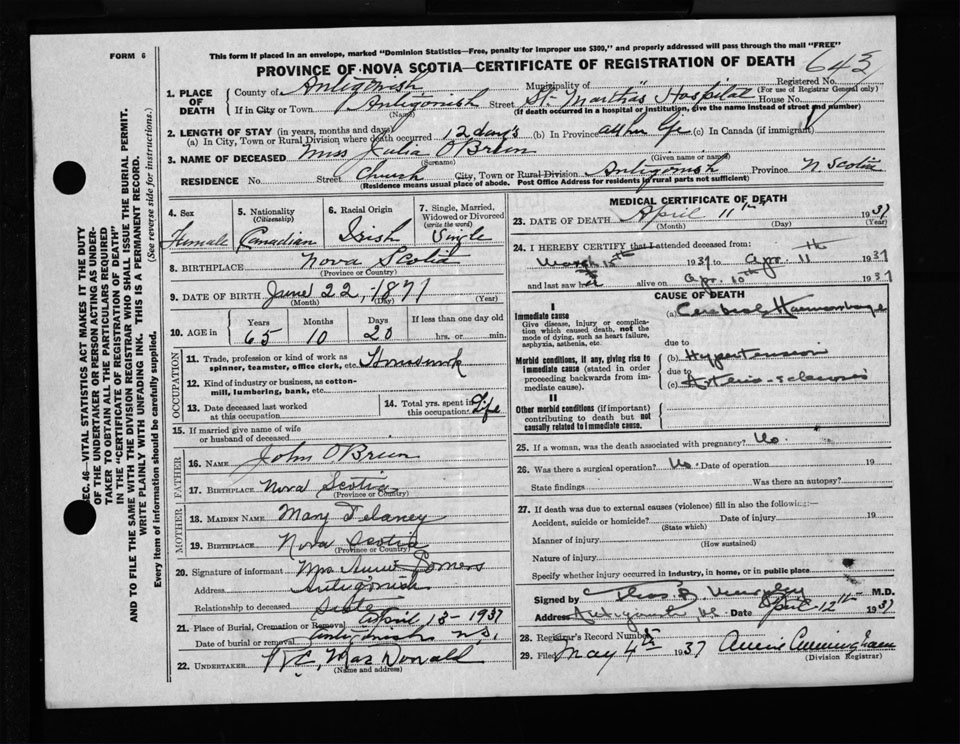 FORM 6
This form if placed in an envelope, marked "Dominion Statistics—Free, penalty for improper use $300," and properly addressed will pass through the mail "FREE"
PROVINCE OF NOVA SCOTIA—CERTIFICATE OF REGISTRATION OF DEATH 643
Registered No.
(For use of Registrar General only)
1. PLACE OF DEATH
County of Antigonish Municipality of "
If in City or Town Antigonish Street St. Martha's Hospital House No.
(Name) (If death occurred in a hospital or institution, give the name instead of street and number)
2. LENGTH OF STAY (in years, months and days)
(a) In City, Town or Rural Division where death occurred 12 days (b) In Province all her life (c) In Canada (if immigrant)
3. NAME OF DECEASED Miss Julia O'Brien
(Surname) (Given name or names)
RESIDENCE No. Street Church City, Town or Rural Division Antigonish Province N Scotia
(Residence means usual place of abode. Post Office Address for residents in rural parts not sufficient)
4. Sex Female
5. Nationality (Citizenship) Canadian
6. Racial Origin Irish
7. Single, Married, Widowed or Divorced (write the word) Single
8. BIRTHPLACE Nova Scotia
(Province or Country)
9. DATE OF BIRTH June 22, 1871
(Month) (Day) (Year)
10. AGE in
Years Months Days If less than one day old
65 10 20 hrs. or min.
OCCUPATION
11. Trade, profession or kind of work as spinner, teamster, office clerk, etc. Housework
12. Kind of industry or business, as cotton-mill, lumbering, bank, etc.
13. Date deceased last worked at this occupation
14. Total yrs. spent in this occupation Life
15. If married give name of wife or husband of deceased
FATHER
16. Name John O'Brien
17. BIRTHPLACE Nova Scotia
(Province or Country)
MOTHER
18. MAIDEN NAME Mary Delaney
19. BIRTHPLACE Nova Scotia
(Province or Country)
20. Signature of informant Mrs. Annie Somers
Address Antigonish
Relationship to deceased Sister
21. Place of Burial, Cremation or Removal April 13-1937
Date of burial or removal Antigonish N.S.
22. UNDERTAKER MacDonald
MEDICAL CERTIFICATE OF DEATH
23. DATE OF DEATH April 11th 1937
(Month) (Day) (Year)
24. I HEREBY CERTIFY that I attended deceased from:
March 15th 1937 to Apr. 11th 1937
and last saw her alive on Apr. 10th 1937
CAUSE OF DEATH
I
Immediate cause
Give disease, injury or complication which caused death, not the mode of dying, such as heart failure, asphyxia, asthenia, etc.
(a) Cerebral Haemorrhage
due to
Morbid conditions, if any, giving rise to immediate cause (stated in order proceeding backwards from immediate cause).
(b) Hypertension
due to
(c) Arterio-sclerosis
II
Other morbid conditions (if important) contributing to death but not causally related to immediate cause.
25. If a woman, was the death associated with pregnancy? No.
26. Was there a surgical operation? No. Date of operation 19
State findings Was there an autopsy?
27. If death was due to external causes (violence) fill in also the following:—
Accident, suicide or homicide? Date of injury 19
(State which)
Manner of injury
(How sustained)
Nature of injury
Specify whether injury occurred in industry, in home, or in public place
Signed by Thos B Murphy M.D.
Address Antigonish, N.S. Date April-12th 1937
28. Registrar's Record Number
29. Filed May 4th 1937 Annie Cunningham
(Division Registrar)
SEC. 46—VITAL STATISTICS ACT MAKES IT THE DUTY
OF THE UNDERTAKER OR PERSON ACTING AS UNDER-
TAKER TO OBTAIN ALL THE PARTICULARS REQUIRED
IN THE "CERTIFICATE OF REGISTRATION OF DEATH"
AND TO FILE THE SAME WITH THE DIVISION REGISTRAR WHO SHALL ISSUE THE BURIAL PERMIT.
WRITE PLAINLY WITH UNFADING INK. THIS IS A PERMANENT RECORD.
Every item of information should be carefully supplied. (See reverse side for instructions.)